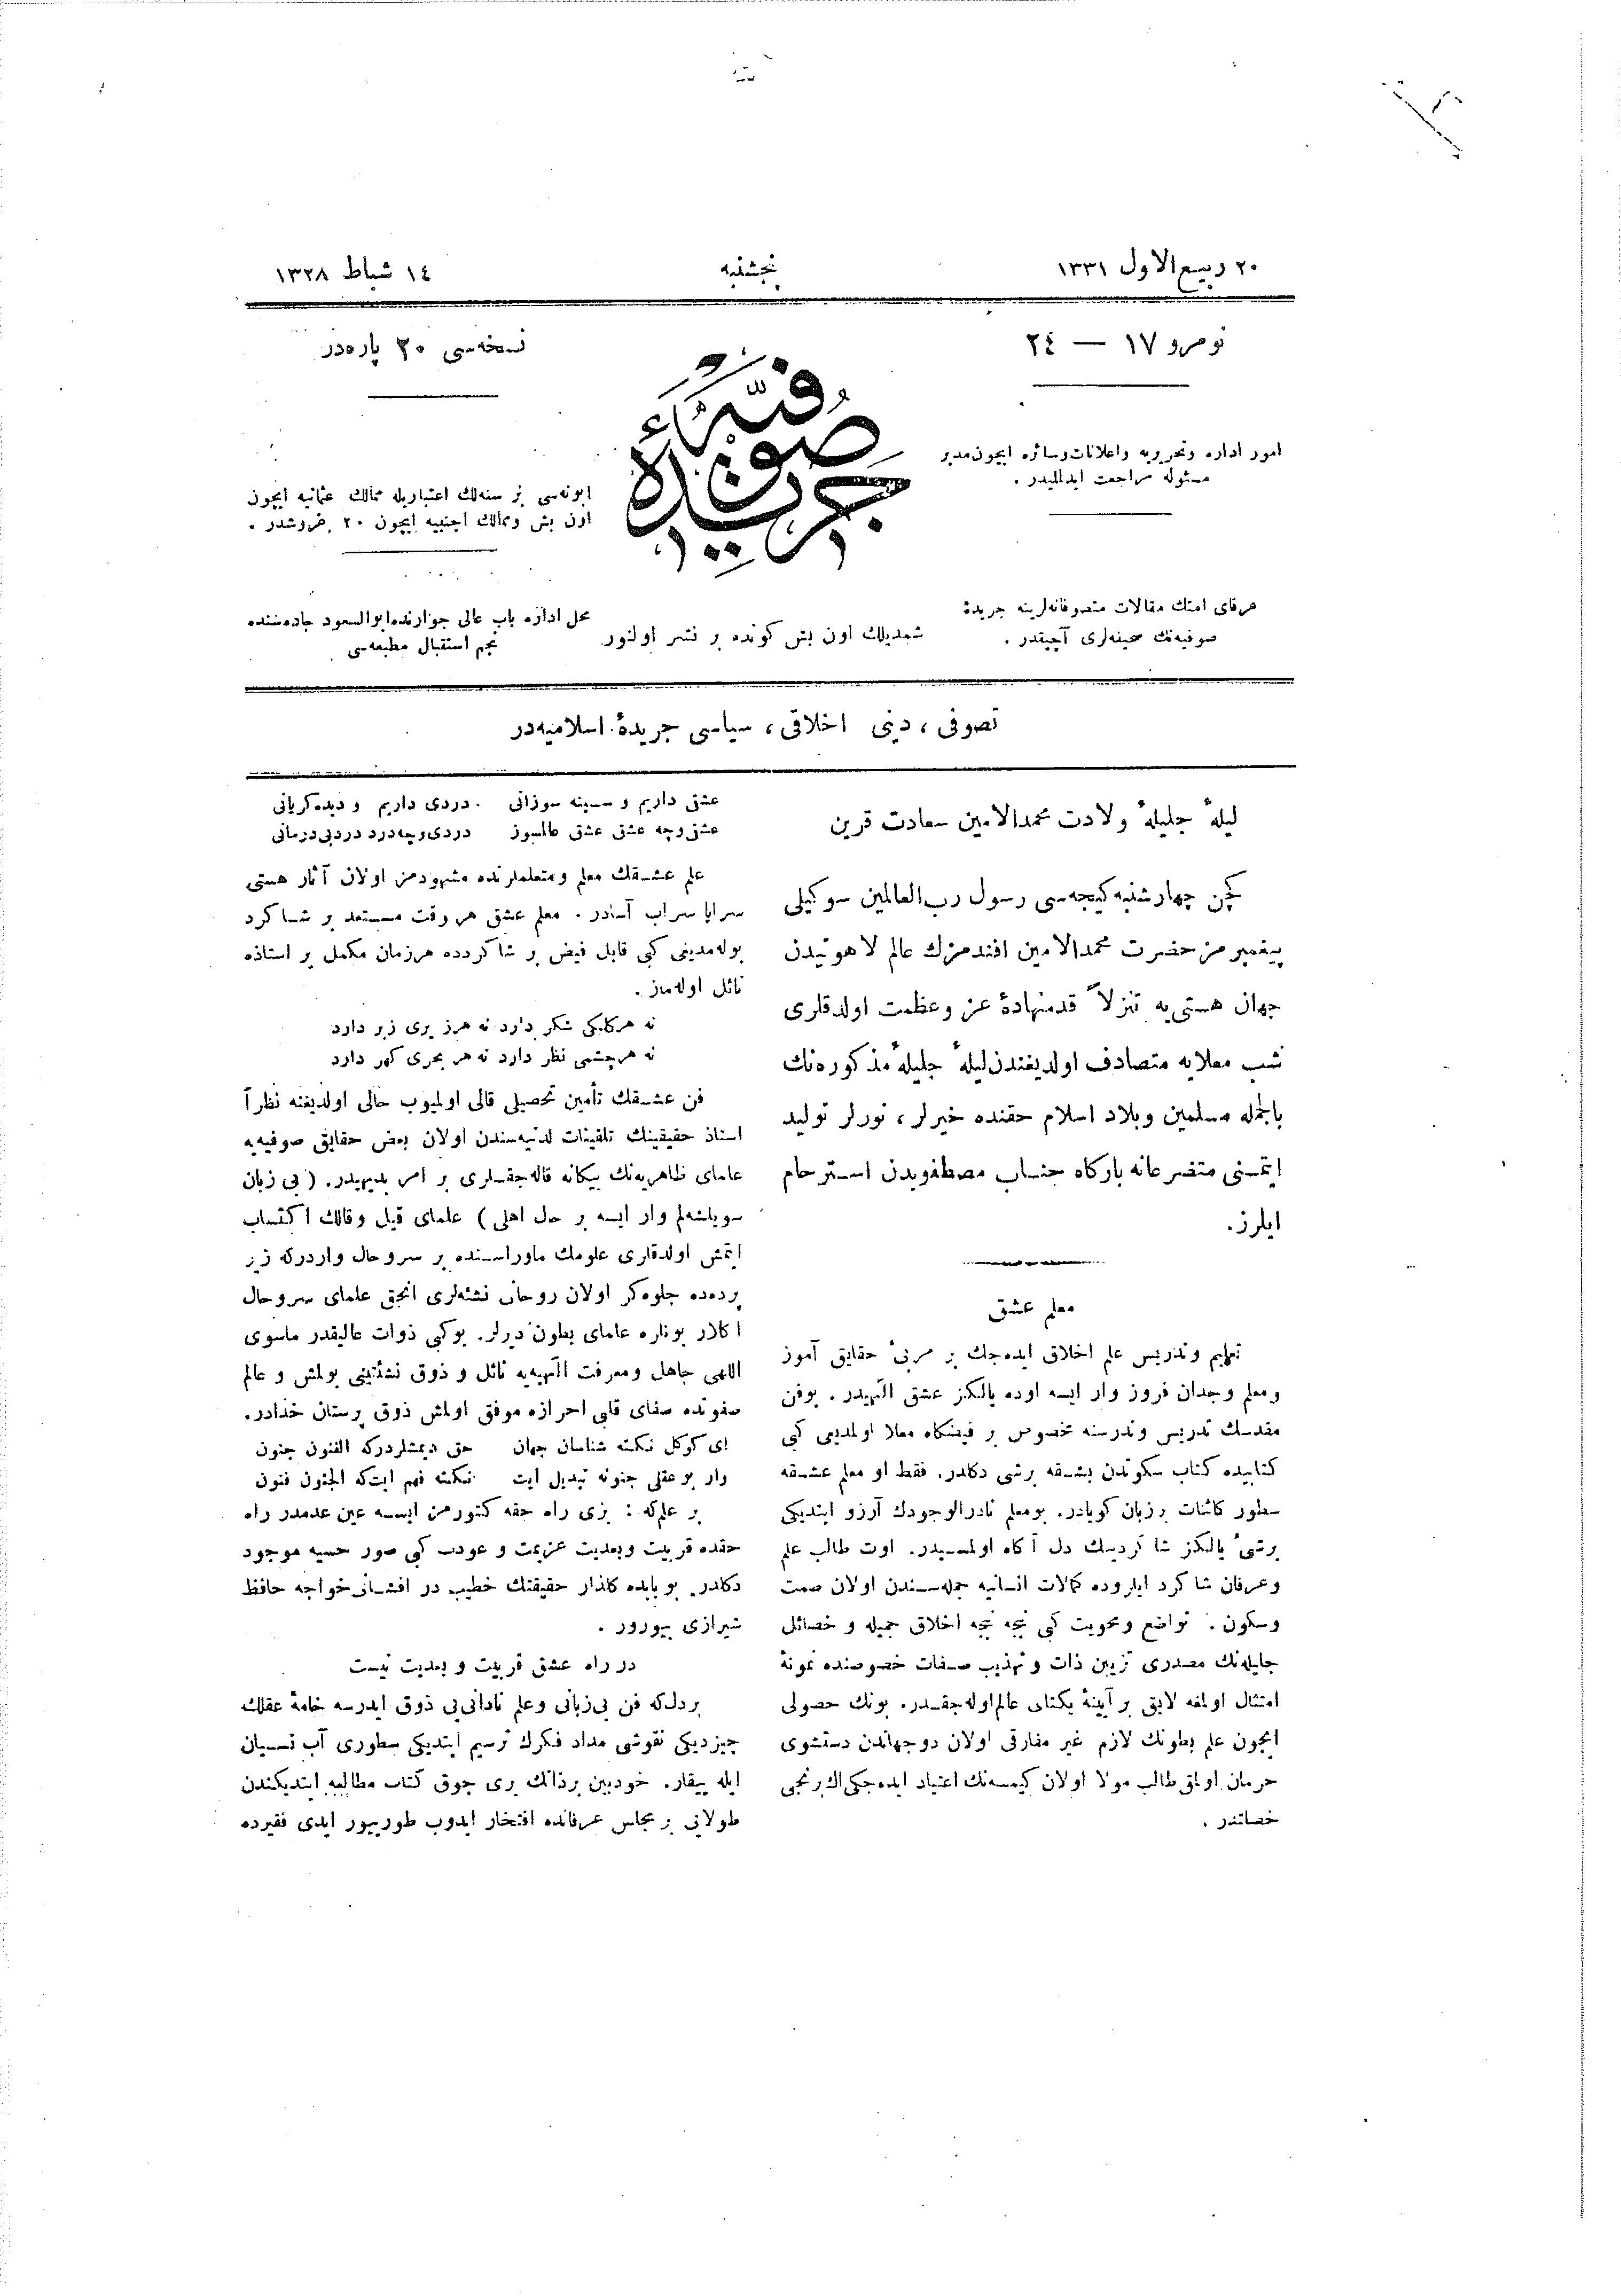 ٢٠ ربيع الاول ١٣٣١
پنجشنبه
١٤ شباط ١٣٢٨
نومرو ١٧ — ٢٤
نسخه‌سی ٢٠ پاره‌در
جريدهٔ صوفيه
امور اداره وتحريريه واعلانات وسائره ايچون مدير
مسئوله مراجعت ايدلمليدر .
ابونه‌سی بر سنه‌لك اعتباريله ممالك عثمانيه ايچون
اون بش وممالك اجنبيه ايچون ٢٠ غروشدر .
عرفای امتك مقالات متصوفانه‌لرينه جريدهٔ
صوفيه‌نك صحيفه‌لری آچيقدر .
شمديلك اون بش كونده بر نشر اولنور
محل اداره باب عالی جوارنده ابوالسعود جاده‌سنده
نجم استقبال مطبعه‌سی
تصوفی ، دينی اخلاقی ، سياسی جريدهٔ اسلاميه‌در
ليلهٔ جليلهٔ ولادت محمدالامين سعادت قرين
كچن چهارشنبه كيجه‌سی رسول رب‌العالمين سوكيلی
پيغمبرمز حضرت محمدالامين افندمزك عالم لاهوتيدن
جهان هستی‌يه تنزلاً قدمنهادهٔ عز وعظمت اولدقلری
شب معلايه متصادف اولديغندن ليلهٔ جليلهٔ مذكوره‌نك
بالجمله مسلمين وبلاد اسلام حقنده خيرلر ، نورلر توليد
ايتمسنی متضرعانه باركاه جناب مصطفويدن استرحام
ايلرز.
معلم عشق
تعليم وتدريس علم اخلاق ايده‌جك بر مربئ حقايق آموز
ومعلم وجدان فروز وار ايسه اوده يالكز عشق الهيدر . بوفن
مقدسك تدريس وتدرسنه مخصوص بر فيضكاه معلا اولمديغی كبی
كتابيده كتاب سكوتدن بشقه برشی دكلدر. فقط او معلم عشقه
سطور كائنات برزبان كويادر. بومعلم نادرالوجودك آرزو ايتديكی
برشیٔ يالكز شاكردينك دل آكاه اولمسيدر. اوت طالب علم
وعرفان شاكرد ايلروده كمالات انسانيه جمله‌سندن اولان صمت
وسكون . تواضع ومحويت كبی نيجه نيجه اخلاق جميله و خصائل
جليله‌نك مصدری تزيين ذات وتهذيب صفات خصوصنده نمونهٔ
امتثال اولمغه لايق بر آيينهٔ يكتای عالم اوله‌جقدر. بونك حصولی
ايچون علم بطونك لازم غير مفارقی اولان دوجهاندن دستشوی
حرمان اولمق طالب مولا اولان كيمسه‌نك اعتياد ايده‌جكی اك برنجی
خصلتدر .
عشق داريم و سينه سوزانی دردی داريم و ديده كريانی
عشق وچه عشق عشق عالمسوز دردی وچه درد درد بی‌درمانی
علم عشقك معلم ومتعلملرنده مشهودمز اولان آثار هستی
سراپا سراب آسادر . معلم عشق هر وقت مستعد بر شاكرد
بوله‌مديغی كبی قابل فيض بر شاكردده هرزمان مكمل بر استاذه
نائل اوله‌ماز .
نه هركلكی شكر دارد نه هرزيری زبر دارد
نه هرچشمی نظر دارد نه هر بحری كهر دارد
فن عشقك تأمين تحصيلی قالی اولميوب حالی اولديغنه نظراً
استاذ حقيقينك تلقينات لدنيه‌سندن اولان بعض حقايق صوفيه‌يه
علمای ظاهريه‌نك بيكانه قاله‌جقلری بر امر بديهيدر. ( بی زبان
سويلشه‌لم وار ايسه بر حال اهلی ) علمای قيل وقالك اكتساب
ايتمش اولدقلری علومك ماوراسنده بر سروحال واردركه زير
پرده‌ده جلوه‌كر اولان روحانی نشئه‌لری انجق علمای سروحال
اكلار بونلره علمای بطون ديرلر. بوكبی ذوات عاليقدر ماسوی
اللهی جاهل ومعرفت الهيه‌يه نائل و ذوق نشئتينی بولمش و عالم
صفوتده صفای قلبی احرازه موفق اولمش ذوق پرستان خدادر.
ای كوكل نكته شناسان جهان حق ديمشلردركه الفنون جنون
وار بو عقلی جنونه تبديل ايت نكته فهم ايت‌كه الجنون فنون
بر علم‌كه : بزی راه حقه كتورمز ايسه عين عدمدر راه
حقده قربيت وبعديت عزيمت و عودت كبی صور حسيه موجود
دكلدر. بو بابده كلذار حقيقتك خطيب در افشانی خواجه حافظ
شيرازی بيورور .
در راه عشق قربيت و بعديت نيست
بر دل‌كه فن بی‌زبانی وعلم نادانی‌يی ذوق ايدرسه خامهٔ عقلك
چيزديكی نقوشی مداد فكرك ترسيم ايتديكی سطوری آب نسيان
ايله ييقار. خودبين برذاتك بری چوق كتاب مطالعه ايتديكندن
طولايی بر مجلس عرفانده افتخار ايدوب طورييور ايدی فقيرده